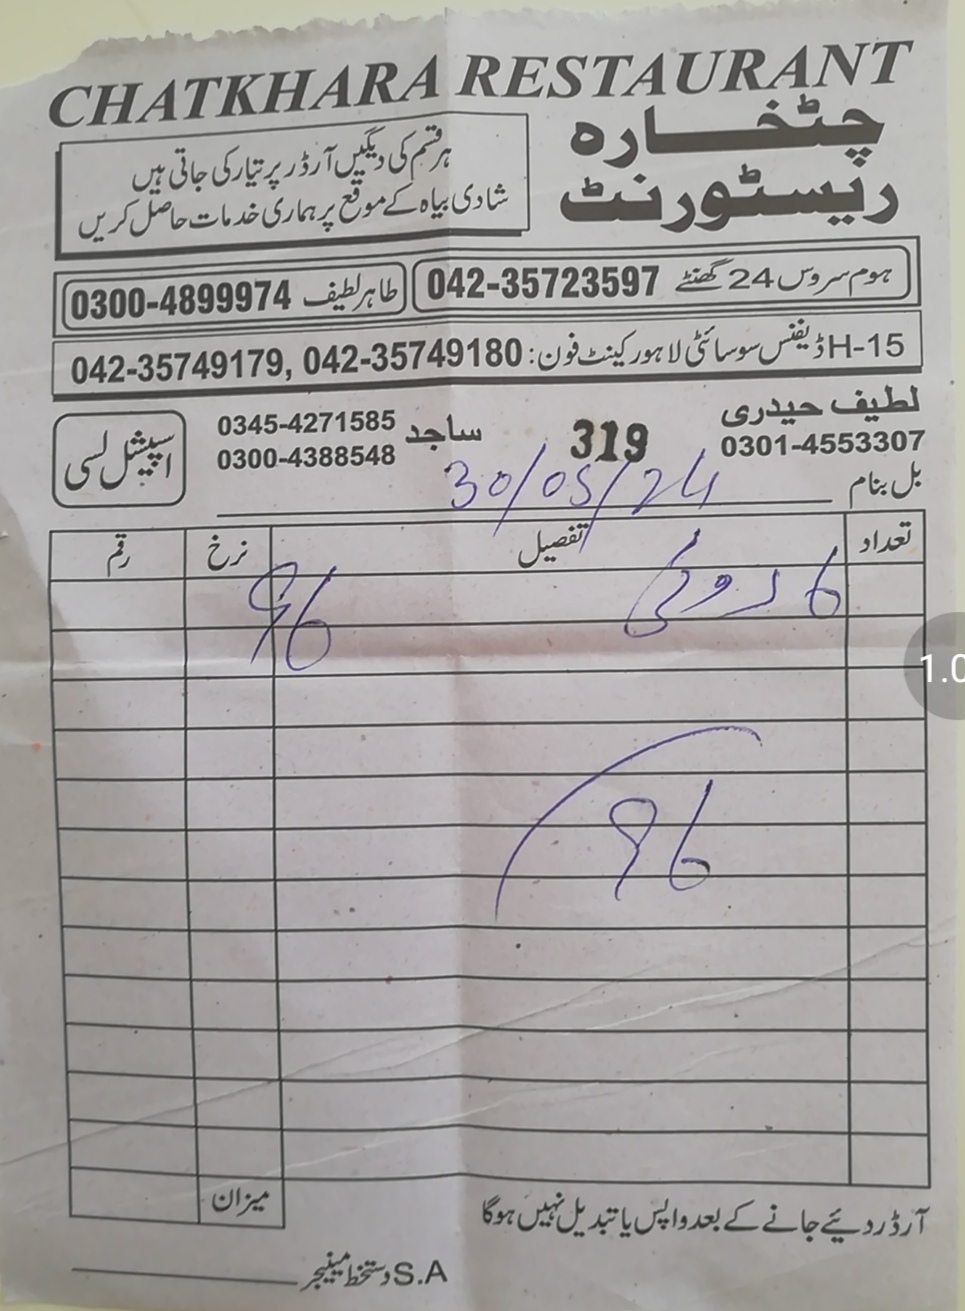 CHATKHARA RESTAURANT
چٹخارہ
ریسٹورنٹ
ہر قسم کی دیگیں آرڈر پر تیار کی جاتی ہیں
شادی بیاہ کے موقع پر ہماری خدمات حاصل کریں
ہوم سروس 24 گھنٹے 042-35723597
طاہر لطیف 0300-4899974
H-15 ڈیفنس سوسائٹی لاہور کینٹ فون: 042-35749180 ,042-35749179
لطیف حیدری
0301-4553307
319
ساجد 0345-4271585
0300-4388548
اسپیشل لسی
بل بنام 30/05/24
تعداد تفصیل نرخ رقم
6 روٹی 96
96
1.0
میزان
آرڈر دیئے جانے کے بعد واپس یا تبدیل نہیں ہوگا
S.A دستخط مینیجر